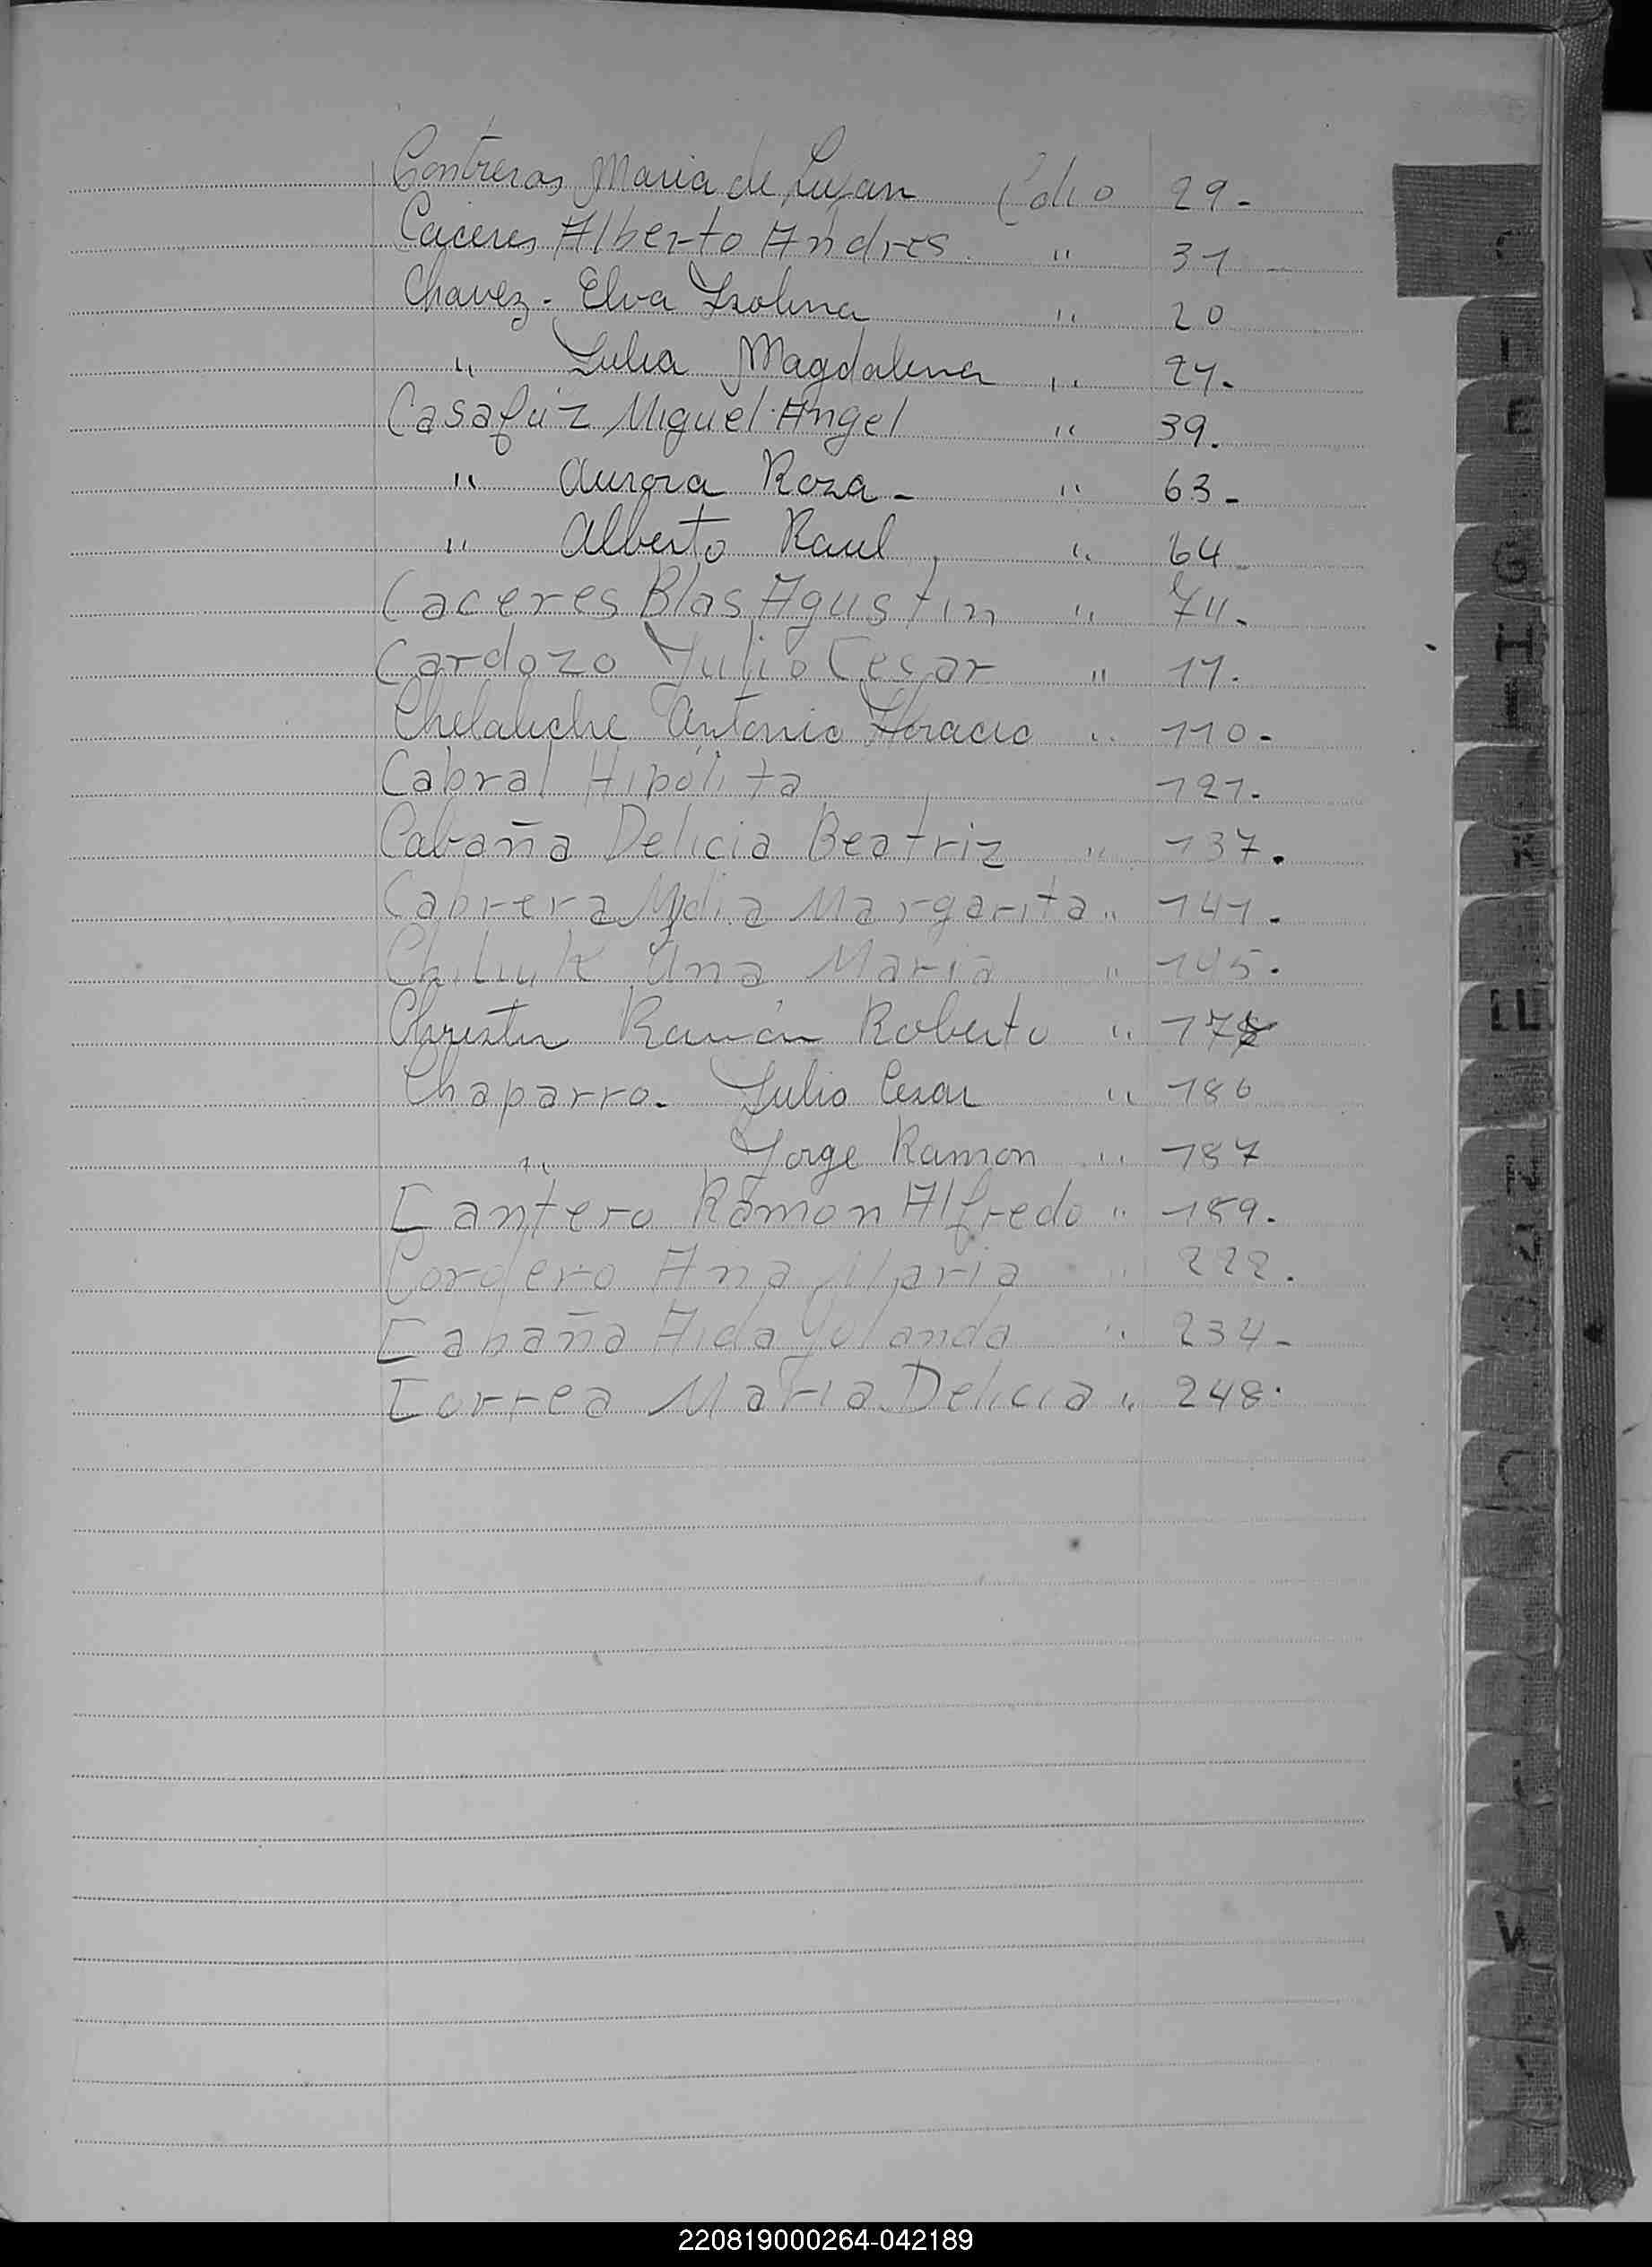 Contreras Maria de Lujan Folio 29-
Caceres Alberto Andres. " 31-
Chavez- Elva Ysolina " 20
" Julia Magdalena " 24.
Casafúz Miguel Angel " 39.
" Aurora Roza- " 63-
" Alberto Raul " 64-
Caceres Blas Agustin " 74.
Cardozo Julio Cesar " 11.
Antonio Horacio " 110-
Cabral Hipólita 121.
Cabaña Delicia Beatriz " 137.
Cabrera Margarita " 141.
Ana Maria " 145.
Ramón Roberto "
Chaparro. Julio Cesar " 186
" Jorge Ramon " 187
Cantero Ramon Alfredo " 189.
Cordero Ana Maria " 222.
Cabaña Aida Yolanda " 234-
Correa Maria Delicia " 248.
E
G
H
I
W
220819000264-042189